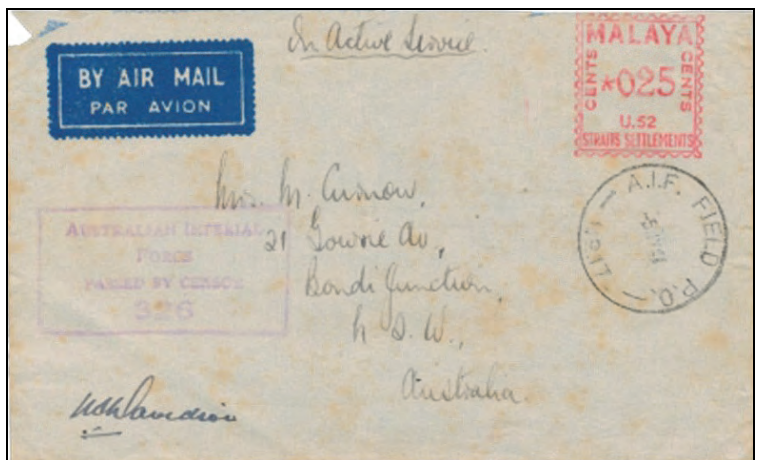 On Active Service.
BY AIR MAIL
PAR AVION
MALAYA
CENTS *025 CENTS
U.52
STRAITS SETTLEMENTS
A.I.F. FIELD P.O.
Mrs. M. Curnow,
21 Gowrie Av.,
Bondi Junction,
N. S. W.,
Australia.
AUSTRALIAN IMPERIAL
FORCE
PASSED BY CENSOR
326